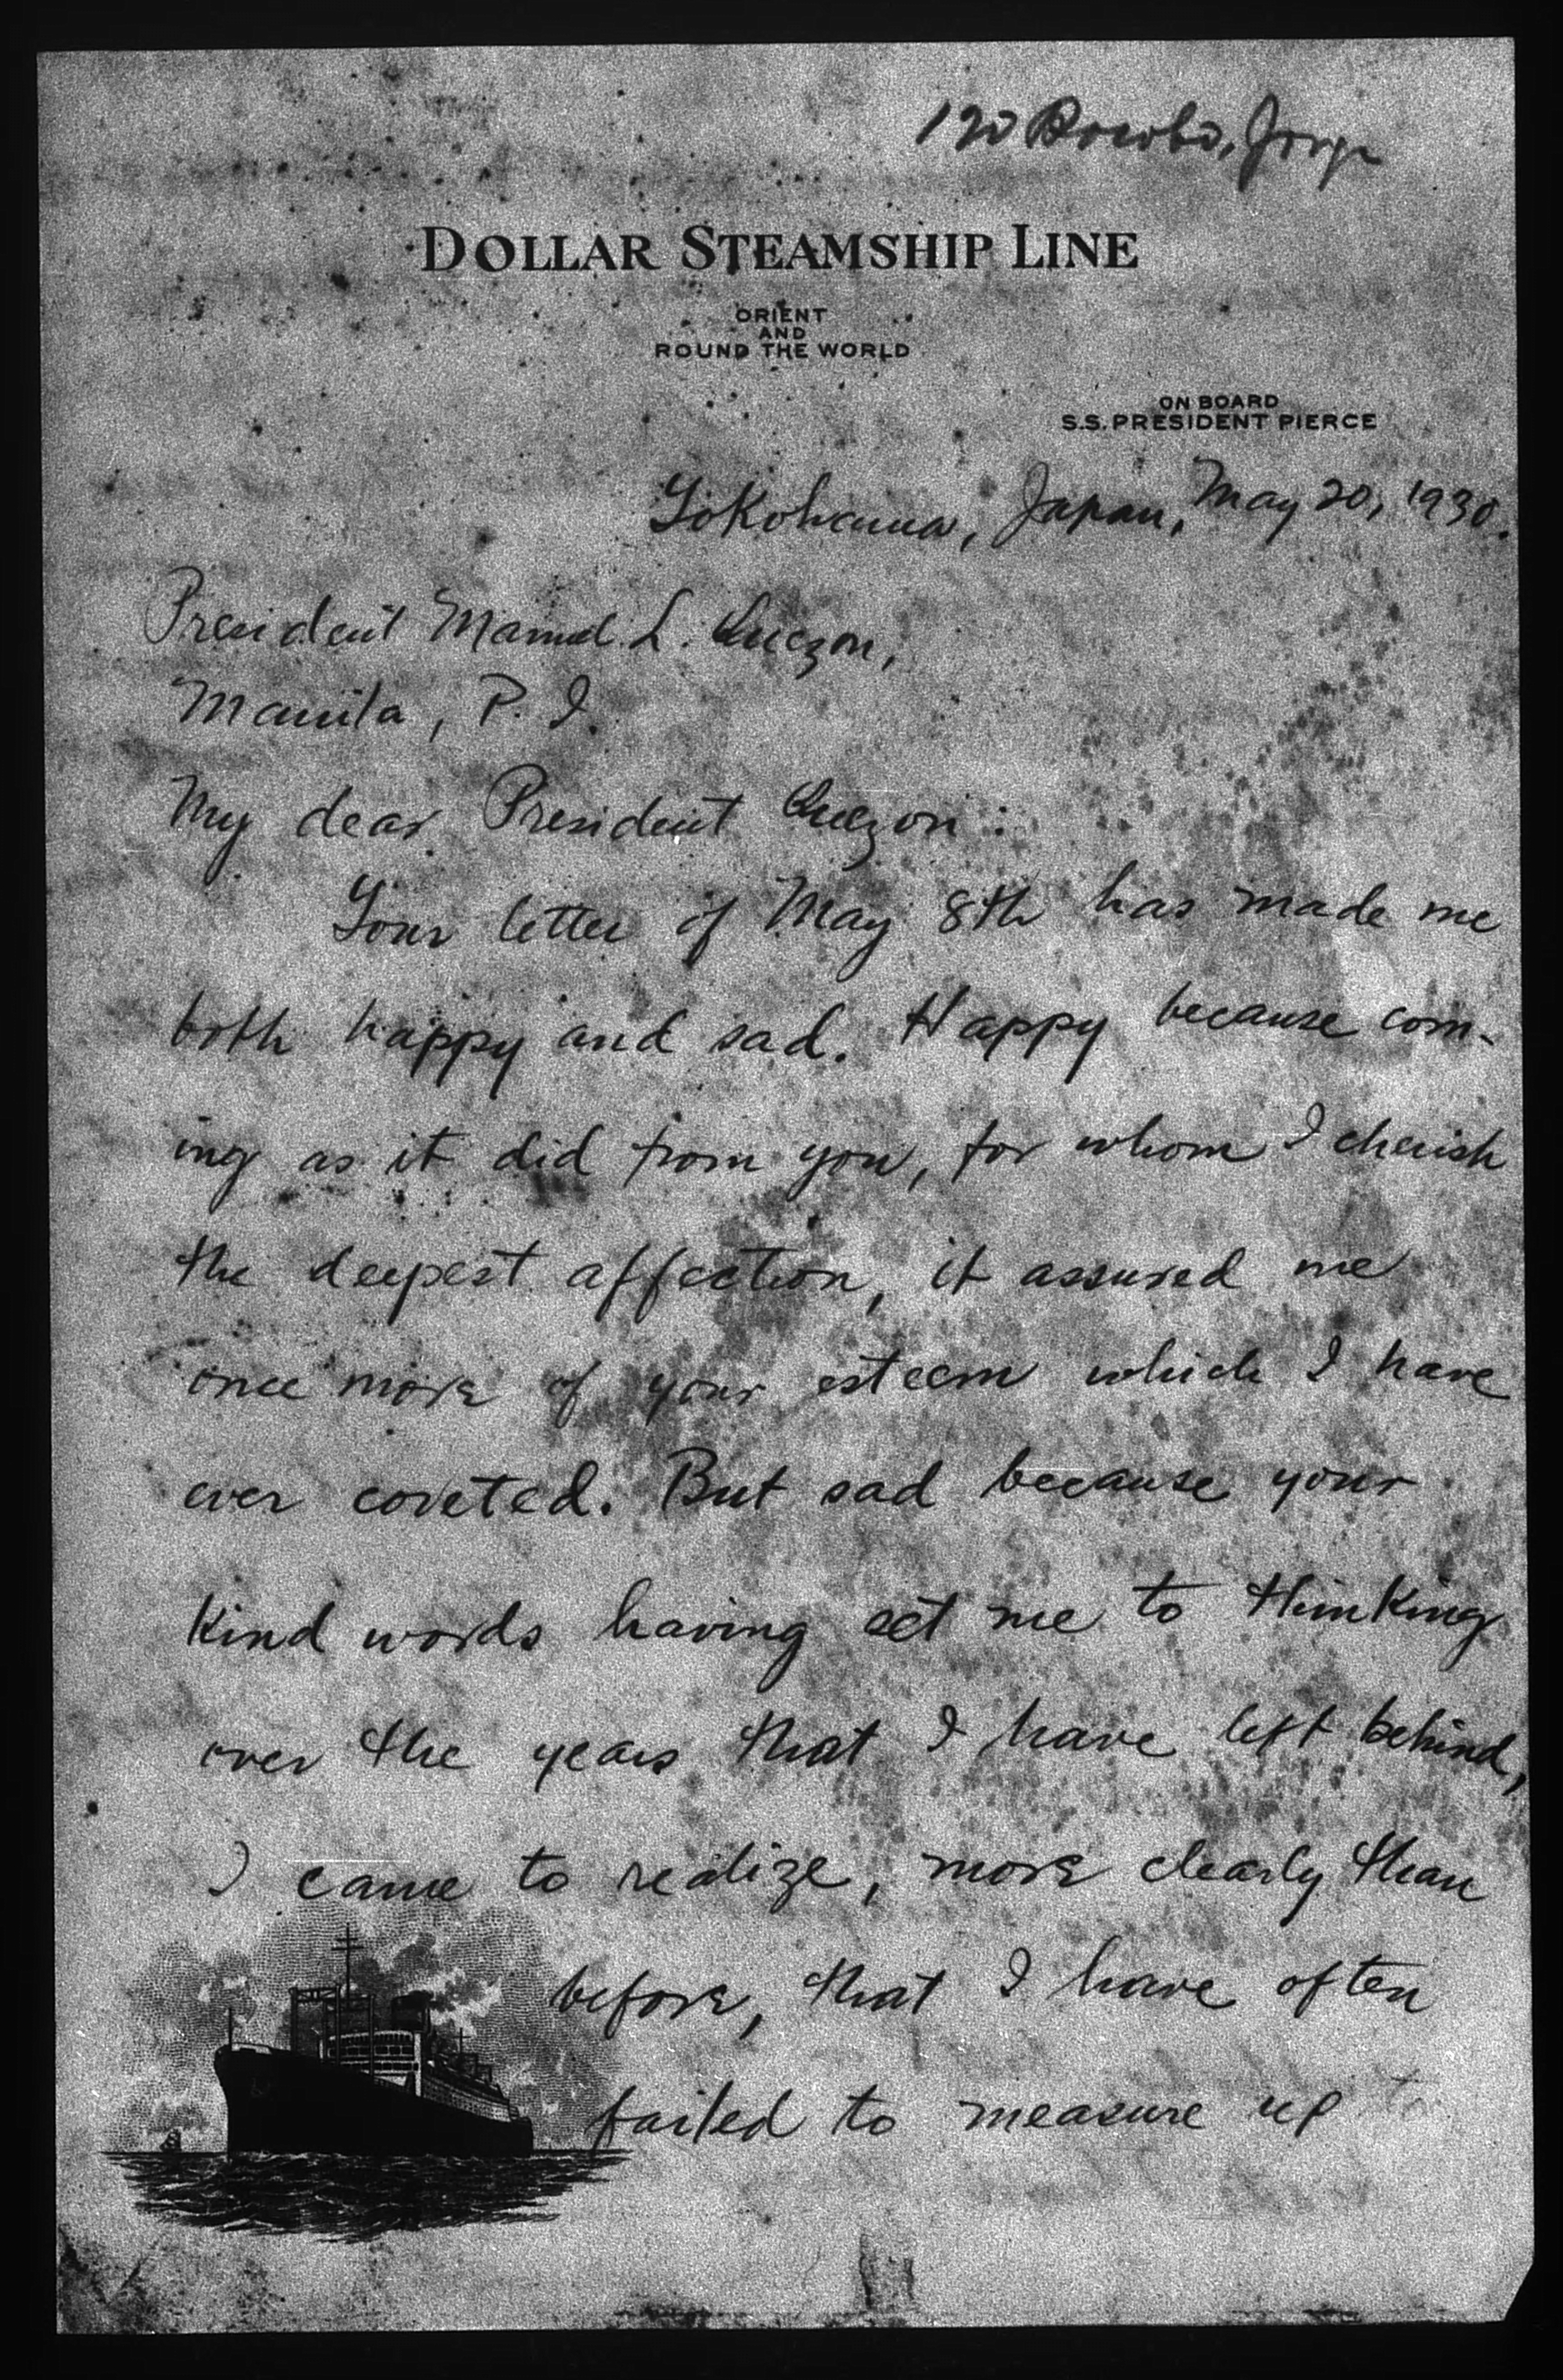 120 Bocobo, Jorge
DOLLAR STEAMSHIP LINE
ORIENT
AND
ROUND THE WORLD
ON BOARD
S.S. PRESIDENT PIERCE
Yokohama, Japan, May 20, 1930.
President Manuel L. Quezon,
Manila, P. I.
My dear President Quezon:
Your letter of May 8th has made me
both happy and sad. Happy because com-
ing as it did from you, for whom I cherish
the deepest affection, it assured me
once more of your esteem which I have
ever coveted. But sad because your
kind words having set me to thinking
over the years that I have left behind,
I came to realize, more clearly than
before, that I have often
failed to measure up